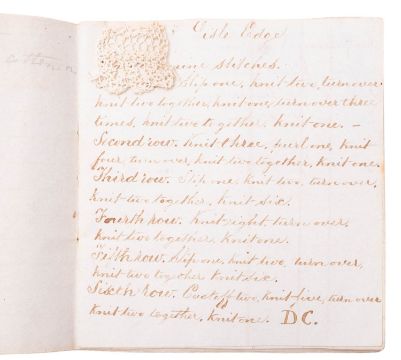 Lisle Edge
nine stitches.
Slip one, knit two, turn over
knit two together, knit one, turn over three
times, knit two together, knit one. —
Second row. Knit three, purl one, knit
four, turn over, knit two together, knit one.
Third row. Slip one, knit two, turn over,
knit two together, knit six.
Fourth row. Knit eight, turn over,
knit two together, knit one.
Fifth row. Slip one, knit two, turn over,
knit two together knit six.
Sixth row. Cast off two, knit five, turn over
knit two together, knit one. D.C.